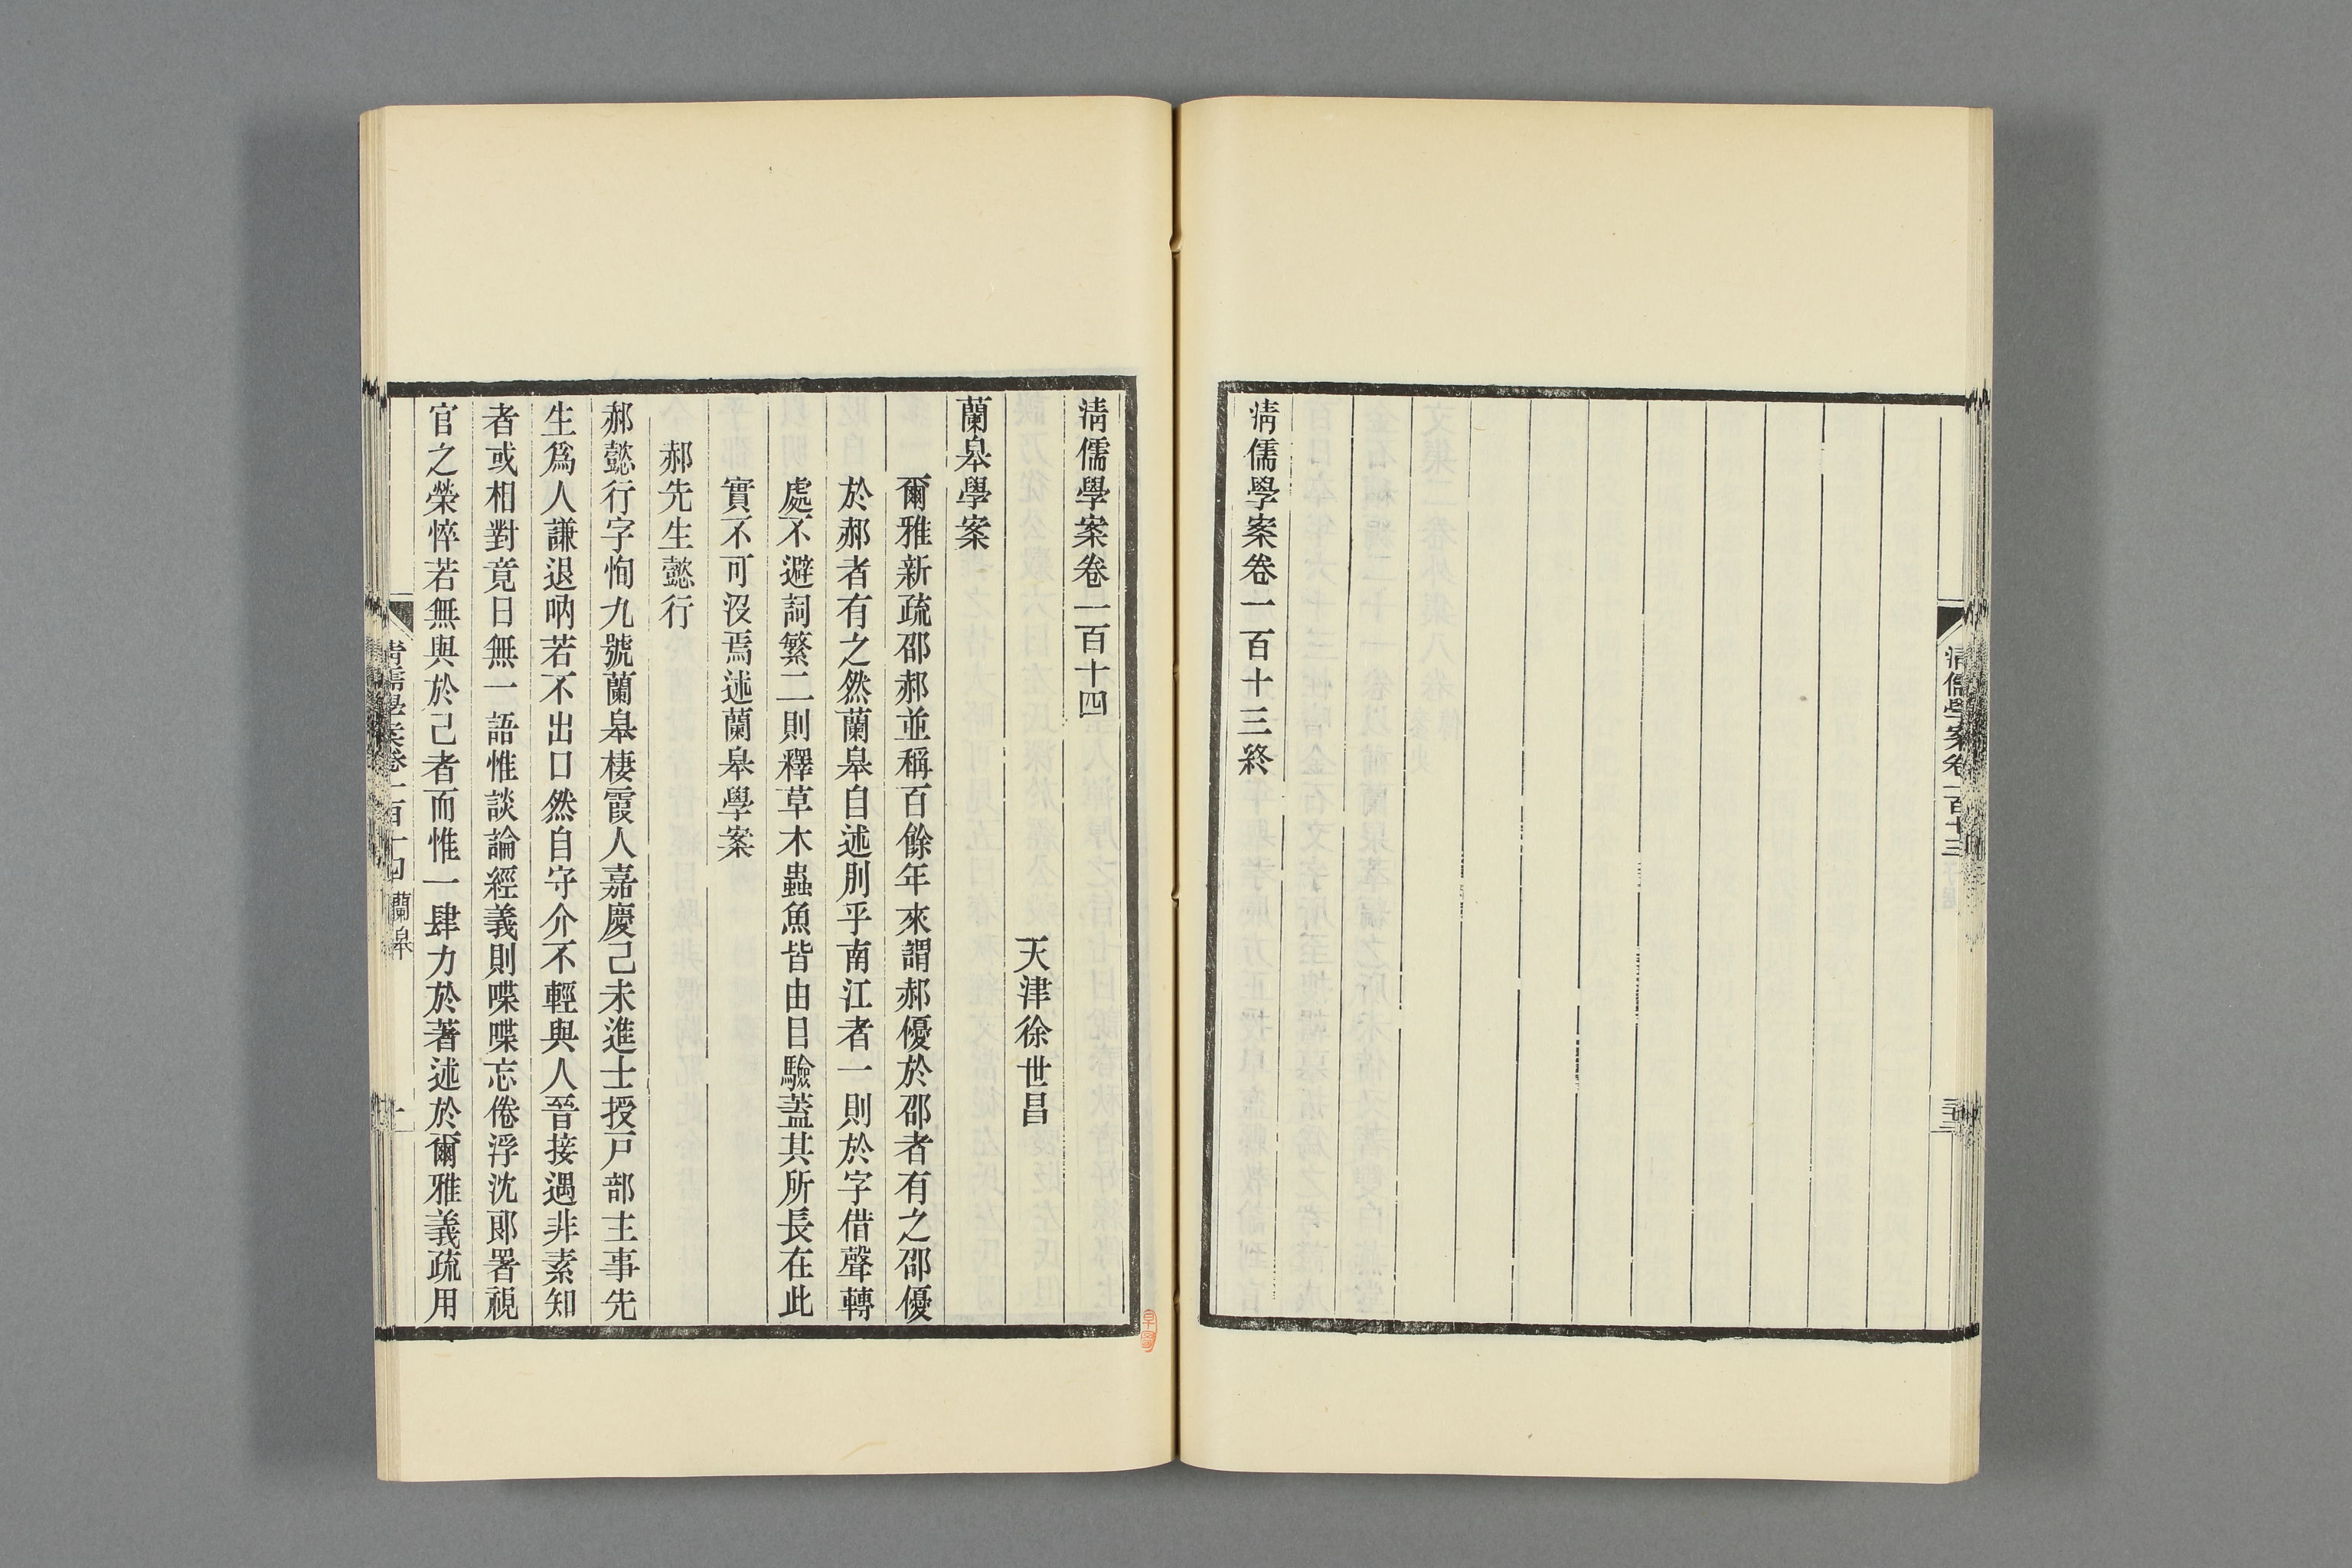 清儒學案卷一百十三
清儒學案卷一百十三終
清儒學案卷一百十四
天津徐世昌
蘭皋學案
爾雅新疏邵郝並稱百餘年來謂郝優於邵者有之邵優
於郝者有之然蘭皋自述刖乎南江者一則於字借聲轉
處不避詞繁二則釋草木蟲魚皆由目驗蓋其所長在此
實不可沒焉述蘭皋學案
郝先生懿行
郝懿行字恂九號蘭皋棲霞人嘉慶己未進士授戸部主事先
生爲人謙退吶若不出口然自守介不輕與人晉接遇非素知
者或相對竟日無一語惟談論經義則喋喋忘倦浮沈郎署視
官之榮悴若無與於己者而惟一肆力於著述於爾雅義疏用
清儒學案卷一百十四 蘭皋
一